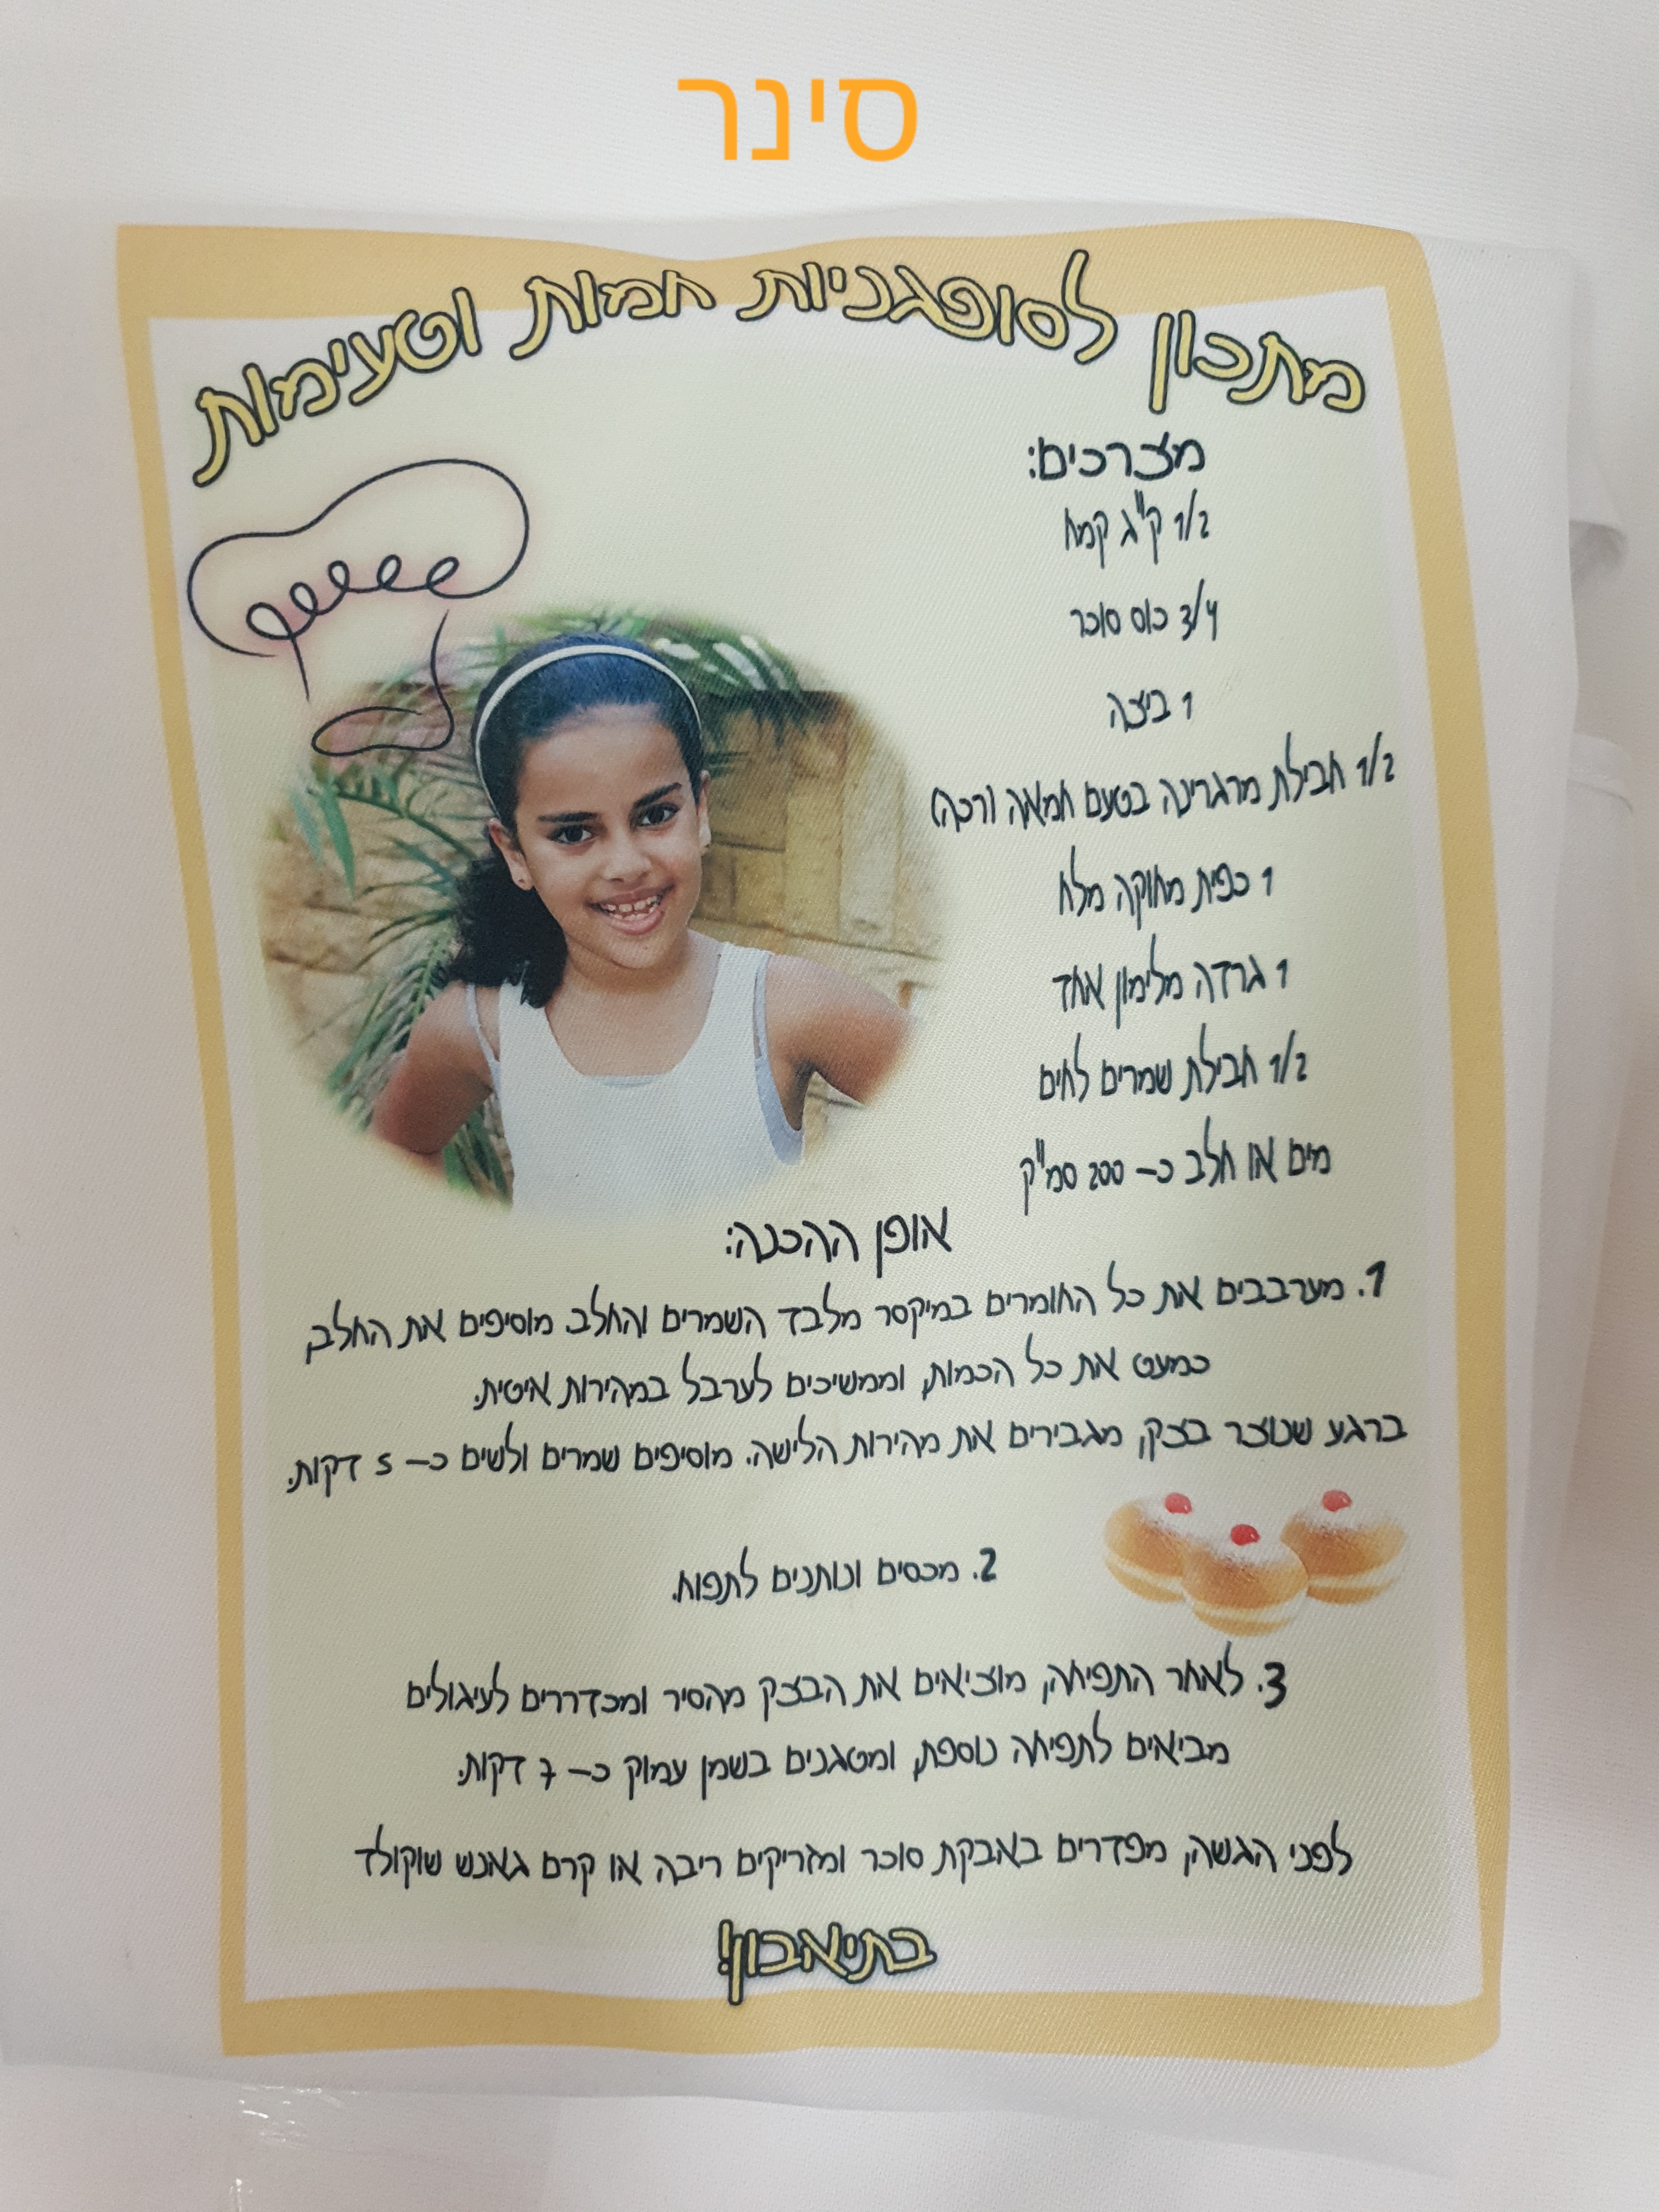 סינר
מתכון לסופגניות חמות וטעימות
מצרכים:
1/2 ק"ג קמח
3/4 כוס סוכר
1 ביצה
1/2 חבילת מרגרינה בטעם חמאה (רכה)
1 כפית מחוקה מלח
1 גרדה מלימון אחד
1/2 חבילת שמרים לחים
מים או חלב כ– 200 סמ"ק
אופן ההכנה:
1. מערבבים את כל החומרים במיקסר מלבד השמרים והחלב. מוסיפים את החלב,
כמעט את כל הכמות, וממשיכים לערבל במהירות איטית.
ברגע שנוצר בצק, מגבירים את מהירות הלישה. מוסיפים שמרים ולשים כ– 5 דקות.
2. מכסים ונותנים לתפוח.
3. לאחר התפיחה, מוציאים את הבצק מהסיר ומכדררים לעיגולים
מביאים לתפיחה נוספת, ומטגנים בשמן עמוק כ– 7 דקות.
לפני הגשה, מפדרים באבקת סוכר ומזריקים ריבה או קרם גאנש שוקולד
בתיאבון!